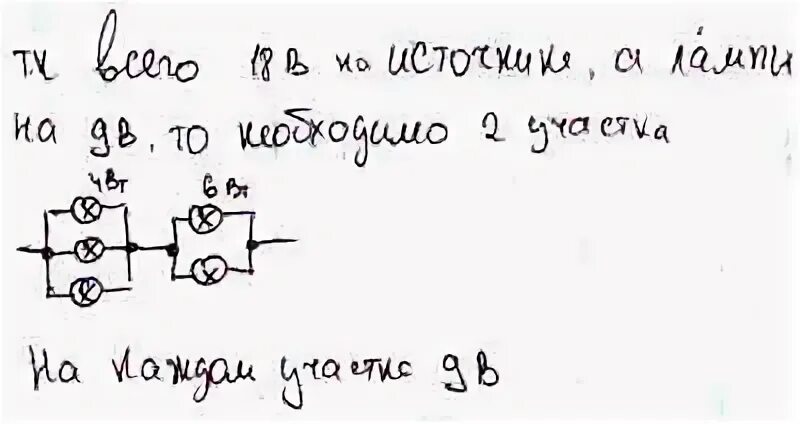 т.к всего 18 В на источнике, а лампы
на 9В, то необходимо 2 участка
4Вт 6 Вт
На каждом участке 9В